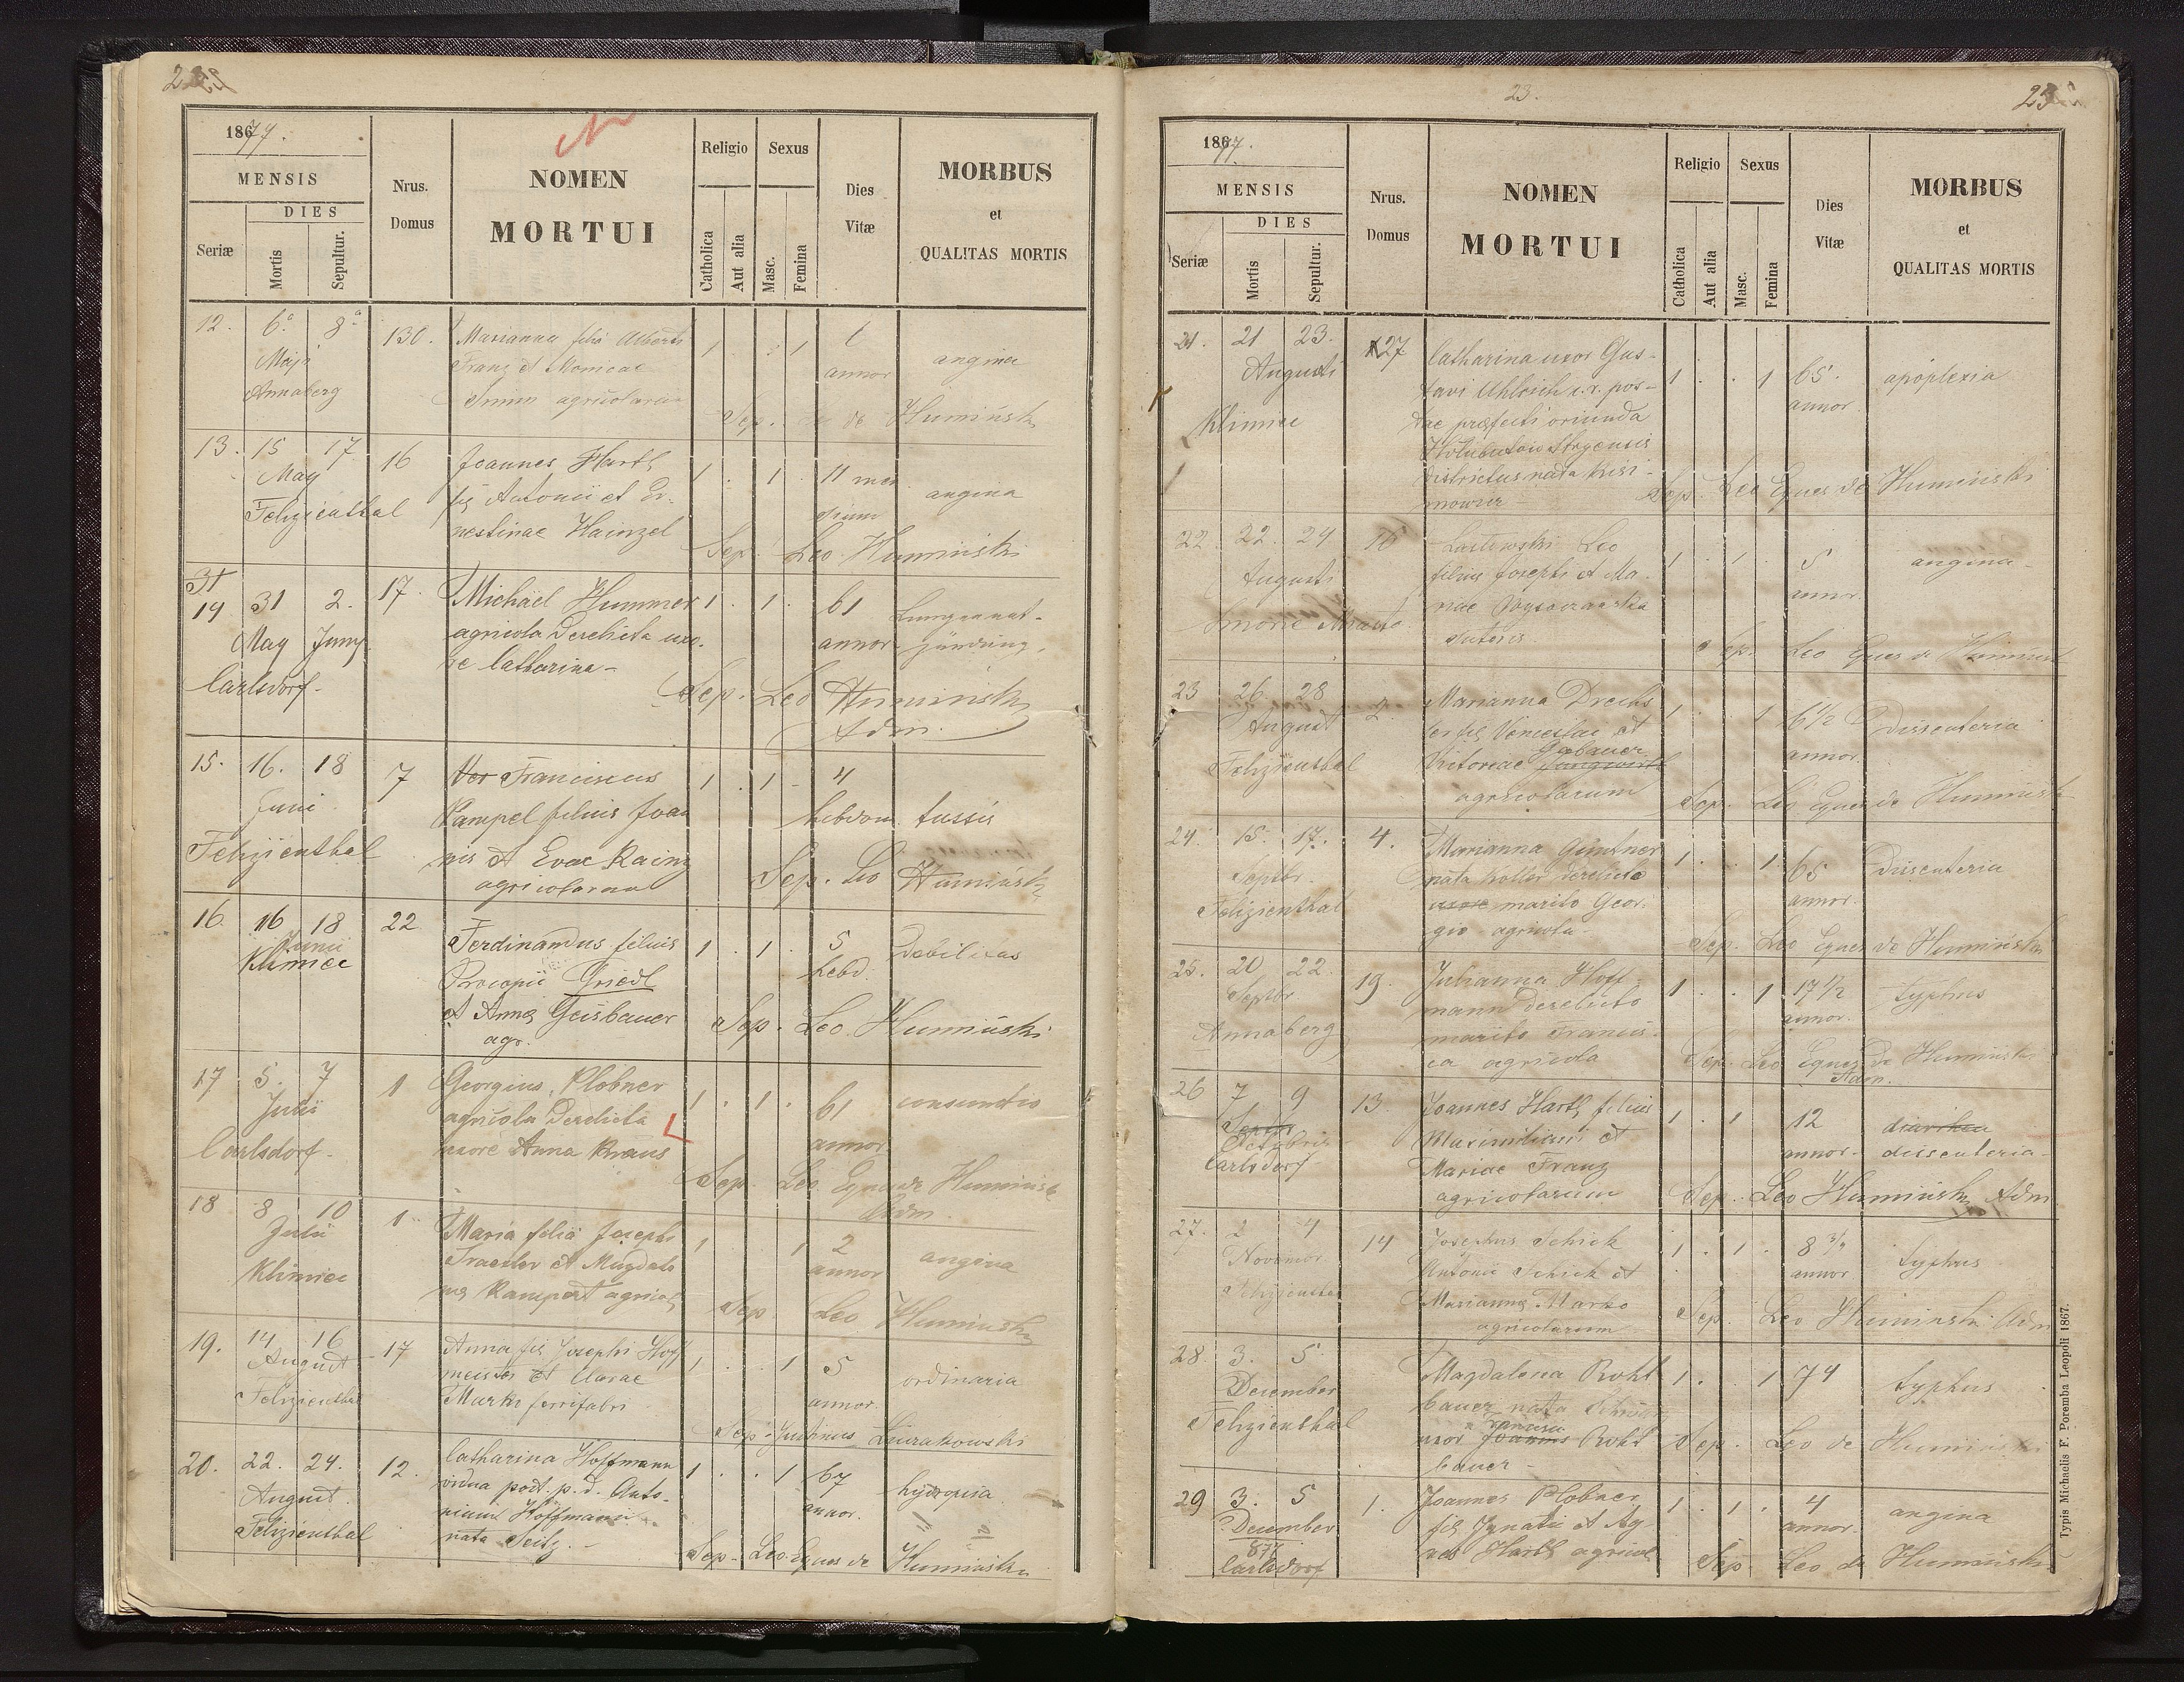 22
1867 77.
MENSIS
DIES
Seriæ
Mortis
Sepultur.
Nrus.
Domus
NOMEN
MORTUI
Religio
Catholica
Aut alia
Sexus
Masc.
Femina
Dies
Vitæ
MORBUS
et
QUALITAS MORTIS
12. 6a 8a 130. Marianna filia Alberti 1 1 1
Maji Franz et Monicae annor angina
Annaberg agricolarum
Sep. de Humiński
13. 15 17 16 Joannes Hartl 1 . 1 . 11 men
May fil Antonii et Er- angina
Felizienthal nestinae Hainzel
Sep. Leo Humiński
31
14 31 2. 17. Michael Hummer 1 . 1 . 61
May Juny agricola derelicta uxo- annor
Carlsdorf re Catharina
Sep. Leo Humiński
Adm.
15. 16. 18 7 Franciscus 1 . 1 - 4
Juni Rampel filius Joan hebdom. tussis
Felizienthal nis et Evae Rainz
agricolarum Sep. Leo Humiński
16. 16 18 22 Ferdinandus filius 1 . 1 . 5 debilitas
Junii Procopii Griedl hebd.
Klimiec et Anna Geisbauer
agr. Sep. Leo Humiński
17 5. 7 1 Georgius Plobner 1 . 1 . 61
Julii agricola derelicta annor.
Carlsdorf uxore Anna Kraus
Sep. Leo Eques de Humiński
Adm.
18 8 10 1 Maria filia Josephi 1 1 2 angina
Julii et Magdale annor
Klimiec na Rampert agricol
Sep. Leo Humiński
19. 14 16 17 Anna fil Josephi Hoff 1 . . 1 5
August meister et Clarae annor. ordinaria
Felizienthal Marko ferrifabri
Sep. Justinus
20. 22. 24. 12. Catharina Hoffmann 1 . . 1 67
August vidua post p. d. Anto- annor. hydropisia
Felizienthal nium Hoffmann
nata Seitz. -
Sep. Leo Eques de Humiński
23.
23
1867 77.
MENSIS
DIES
Seriæ
Mortis
Sepultur.
Nrus.
Domus
NOMEN
MORTUI
Religio
Catholica
Aut alia
Sexus
Masc.
Femina
Dies
Vitæ
MORBUS
et
QUALITAS MORTIS
21. 21 23. 27 Catharina uxor Gus- 1 . . 1 65. apoplexia
Augusti tavi c.r. pos- annor.
Klimiec tae praefecti oriunda
Stryensis
districtus nata
Sep. Leo Eques de Humiński
22 22. 24 16 Leo 1 . 1 . 5 angina
Augusti filius Josephi et Ma- annor.
riae
Smorze Miasto sutoris
Sep. Leo Eques de Humiński
23 26 28 2. Marianna Drechs 1 . . 1 6 1/2 dissenteria
August ler fil Venceslai et annor.
Gabauer
Felizienthal Victoriae
agricolarum Sep. Leo Eques de Humiński
24. 15. 17. 4. Marianna Gintner 1 . . 1 65 dissenteria
Septbr. nata Koller derelicto annor.
Felizienthal uxore marito Geor-
gio agricola
Sep. Leo Eques de Humiński
25. 20 22. 19. Julianna Hoff- 1 . . 1 17 1/2 typhus
Septbr mann derelicto annor.
Annaberg marito Francis-
co agricola Sep. Leo Eques de Humiński
Adm.
26 7 9 13. Joannes Hartl filius 1 . 1 12 diarrhea
Septbr Maximiliani et annor. dissenteria
Octobris Mariae Franz
Carlsdorf agricolarum Sep. Leo Humiński Adm
27. 2 4 14 Josephus Schick 1 . 1 . 8 3/4
November Antonii Schick et annor typhus
Felizienthal Marianna Marko
agricolarum Sep. Leo Humiński Adm
28. 3. 5. Magdalena Rohl 1 . 1 74 typhus
December bauer nata
Felizienthal uxor Joannis Rohl
bauer - Sep. Leo de Humiński
29 3. 5 1. Joannes Plobner 1 . 1 . 4 angina
December fil Ignatii et Ag- annor.
877 nes Hartl agricol
Carlsdorf Sep. Leo de Humiński
Typis Michaelis F. Poremba Leopoli 1867.